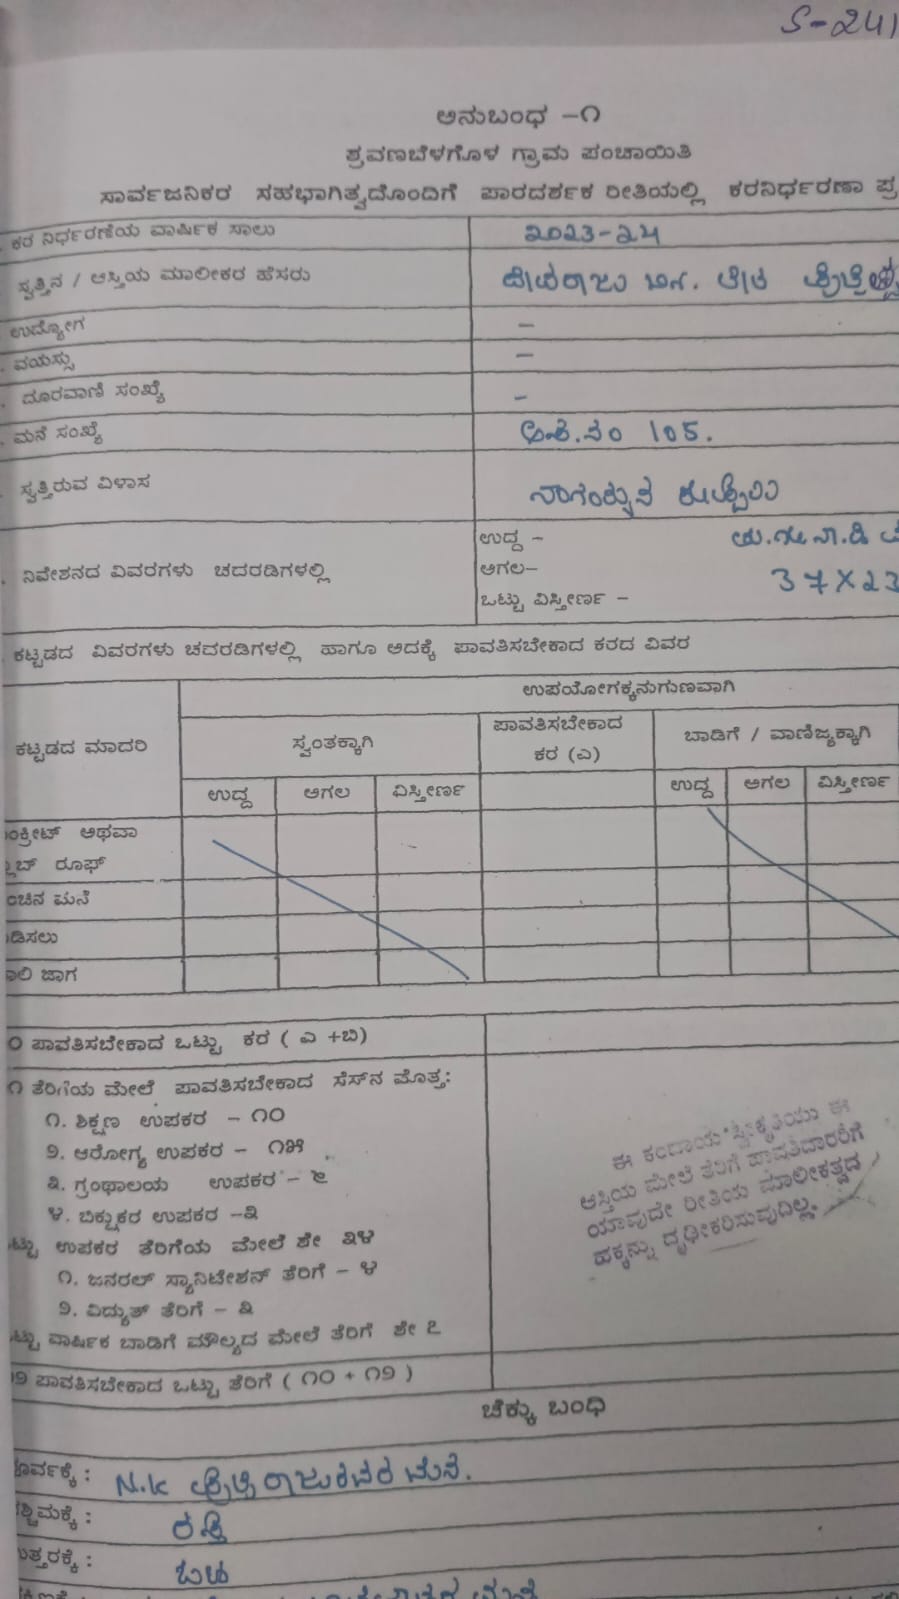 S-241
ಅನುಬಂಧ -೧
ಶ್ರವಣಬೆಳಗೊಳ ಗ್ರಾಮ ಪಂಚಾಯಿತಿ
ಸಾರ್ವಜನಿಕರ ಸಹಭಾಗಿತ್ವದೊಂದಿಗೆ ಪಾರದರ್ಶಕ ರೀತಿಯಲ್ಲಿ ಕರನಿರ್ಧರಣಾ ಪ್ರ
ಕರ ನಿರ್ಧರಣೆಯ ವಾರ್ಷಿಕ ಸಾಲು 2023-24
ಸ್ವತ್ತಿನ / ಆಸ್ತಿಯ ಮಾಲೀಕರ ಹೆಸರು
ಉದ್ಯೋಗ -
ವಯಸ್ಸು -
ದೂರವಾಣಿ ಸಂಖ್ಯೆ -
ಮನೆ ಸಂಖ್ಯೆ ಅ.ಕ.ನಂ 105.
ಸ್ವತ್ತಿರುವ ವಿಳಾಸ
ನಿವೇಶನದ ವಿವರಗಳು ಚದರಡಿಗಳಲ್ಲಿ
ಉದ್ದ -
ಅಗಲ-
ಒಟ್ಟು ವಿಸ್ತೀರ್ಣ -
37X23
ಕಟ್ಟಡದ ವಿವರಗಳು ಚದರಡಿಗಳಲ್ಲಿ ಹಾಗೂ ಅದಕ್ಕೆ ಪಾವತಿಸಬೇಕಾದ ಕರದ ವಿವರ
ಉಪಯೋಗಕ್ಕನುಗುಣವಾಗಿ
ಕಟ್ಟಡದ ಮಾದರಿ
ಸ್ವಂತಕ್ಕಾಗಿ
ಪಾವತಿಸಬೇಕಾದ
ಕರ (ಎ)
ಬಾಡಿಗೆ / ವಾಣಿಜ್ಯಕ್ಕಾಗಿ
ಉದ್ದ ಅಗಲ ವಿಸ್ತೀರ್ಣ ಉದ್ದ ಅಗಲ ವಿಸ್ತೀರ್ಣ
ಂಕ್ರೀಟ್ ಅಥವಾ
ಲ್ಲಾಬ್ ರೂಫ್
ಂಚಿನ ಮನೆ
ುಡಿಸಲು
ಾಲಿ ಜಾಗ
೦ ಪಾವತಿಸಬೇಕಾದ ಒಟ್ಟು ಕರ ( ಎ +ಬಿ)
೧ ತೆರಿಗೆಯ ಮೇಲೆ ಪಾವತಿಸಬೇಕಾದ ಸೆಸ್‌ನ ಮೊತ್ತ:
೧. ಶಿಕ್ಷಣ ಉಪಕರ - ೧೦
೨. ಆರೋಗ್ಯ ಉಪಕರ - ೧೫
೩. ಗ್ರಂಥಾಲಯ ಉಪಕರ - ೬
೪. ಬಿಕ್ಷುಕರ ಉಪಕರ -೩
ಟ್ಟು ಉಪಕರ ತೆರಿಗೆಯ ಮೇಲೆ ಶೇ ೩೪
೧. ಜನರಲ್ ಸ್ಯಾನಿಟೇಶನ್ ತೆರಿಗೆ - ೪
೨. ವಿದ್ಯುತ್ ತೆರಿಗೆ - ೩
ಟ್ಟು ವಾರ್ಷಿಕ ಬಾಡಿಗೆ ಮೌಲ್ಯದ ಮೇಲೆ ತೆರಿಗೆ ಶೇ ೭
ಈ ಕಂದಾಯ ಸ್ವೀಕೃತಿಯು ಈ
ಆಸ್ತಿಯ ಮೇಲೆ ತೆರಿಗೆ ಪಾವತಿದಾರರಿಗೆ
ಯಾವುದೇ ರೀತಿಯ ಮಾಲೀಕತ್ವದ
ಹಕ್ಕನ್ನು ದೃಢೀಕರಿಸುವುದಿಲ್ಲ.
೨ ಪಾವತಿಸಬೇಕಾದ ಒಟ್ಟು ತೆರಿಗೆ ( ೧೦ + ೧೨ )
ಚೆಕ್ಕು ಬಂಧಿ
ೂರ್ವಕ್ಕೆ : N.K ರಾಜುರವರ ಮನೆ.
ಶ್ಚಿಮಕ್ಕೆ : ರಸ್ತೆ
ತ್ತರಕ್ಕೆ : ಓಣಿ